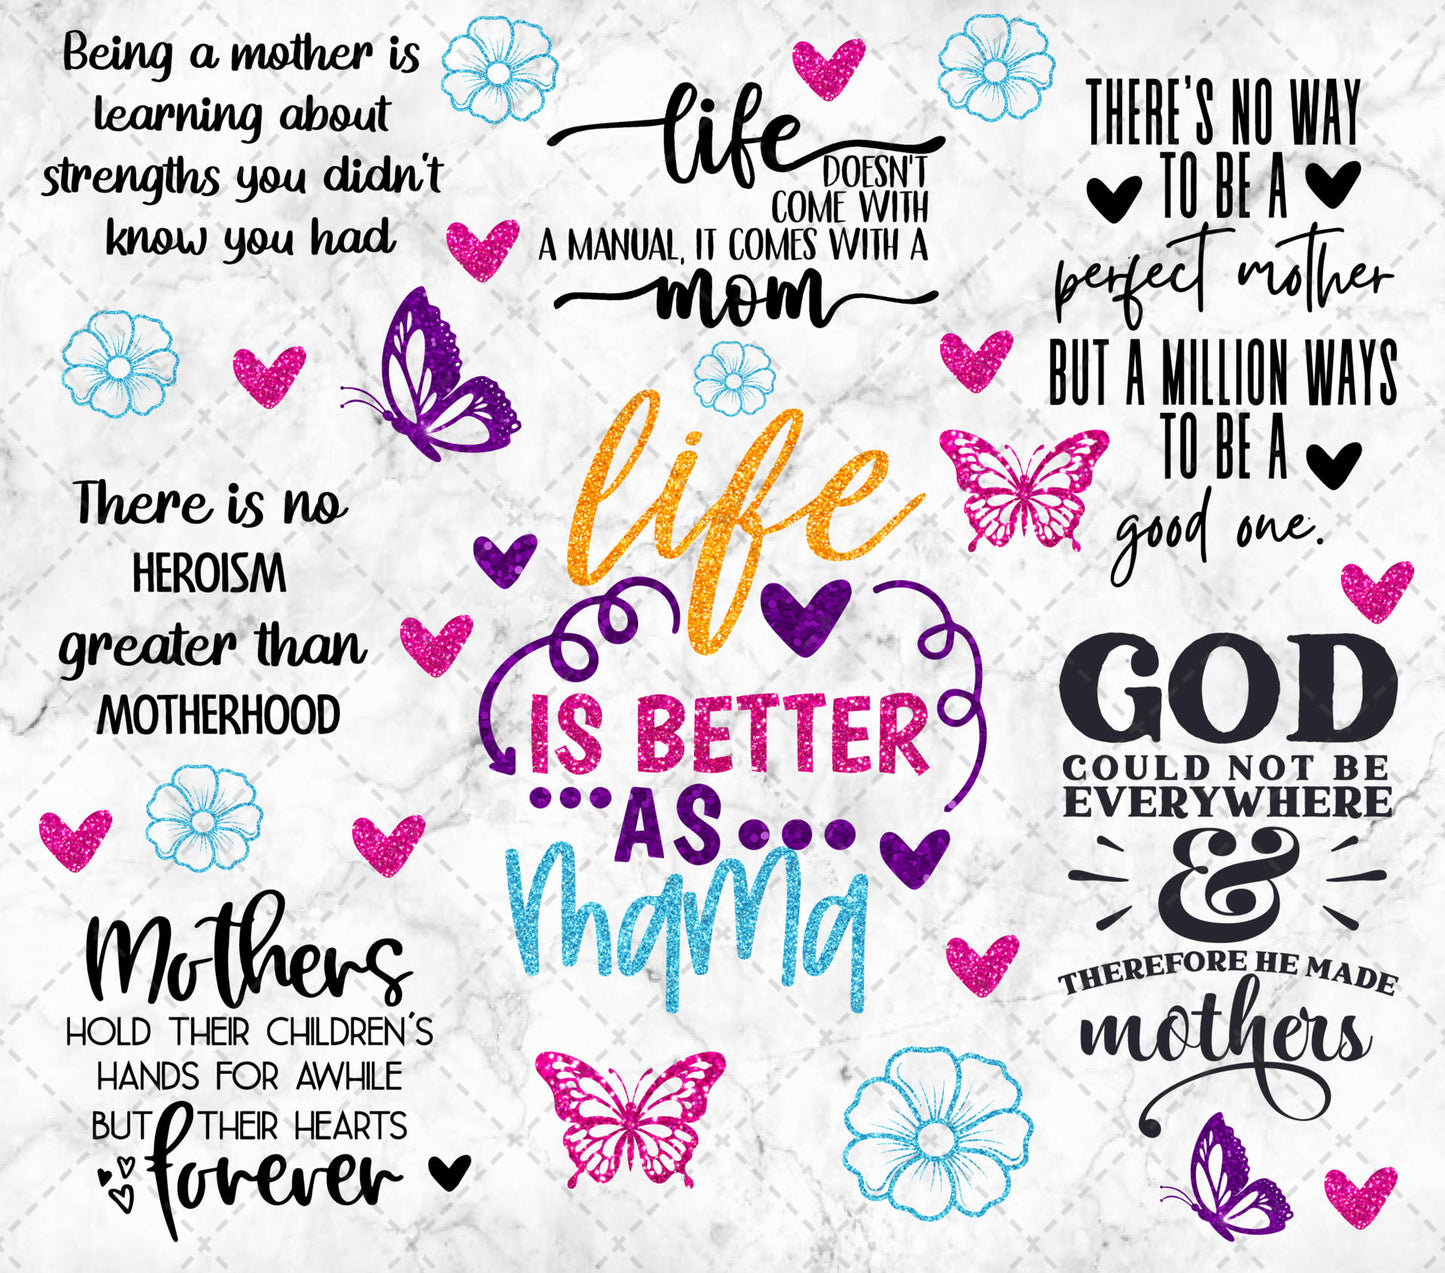 Being a mother is
learning about
strengths you didn't
know you had
life
DOESN'T
COME WITH
A MANUAL, IT COMES WITH A
mom
THERE'S NO WAY
TO BE A
perfect mother
BUT A MILLION WAYS
TO BE A
good one.
There is no
HEROISM
greater than
MOTHERHOOD
life
IS BETTER
AS
mama
GOD
COULD NOT BE
EVERYWHERE
&
THEREFORE HE MADE
mothers
Mothers
HOLD THEIR CHILDREN'S
HANDS FOR AWHILE
BUT THEIR HEARTS
forever